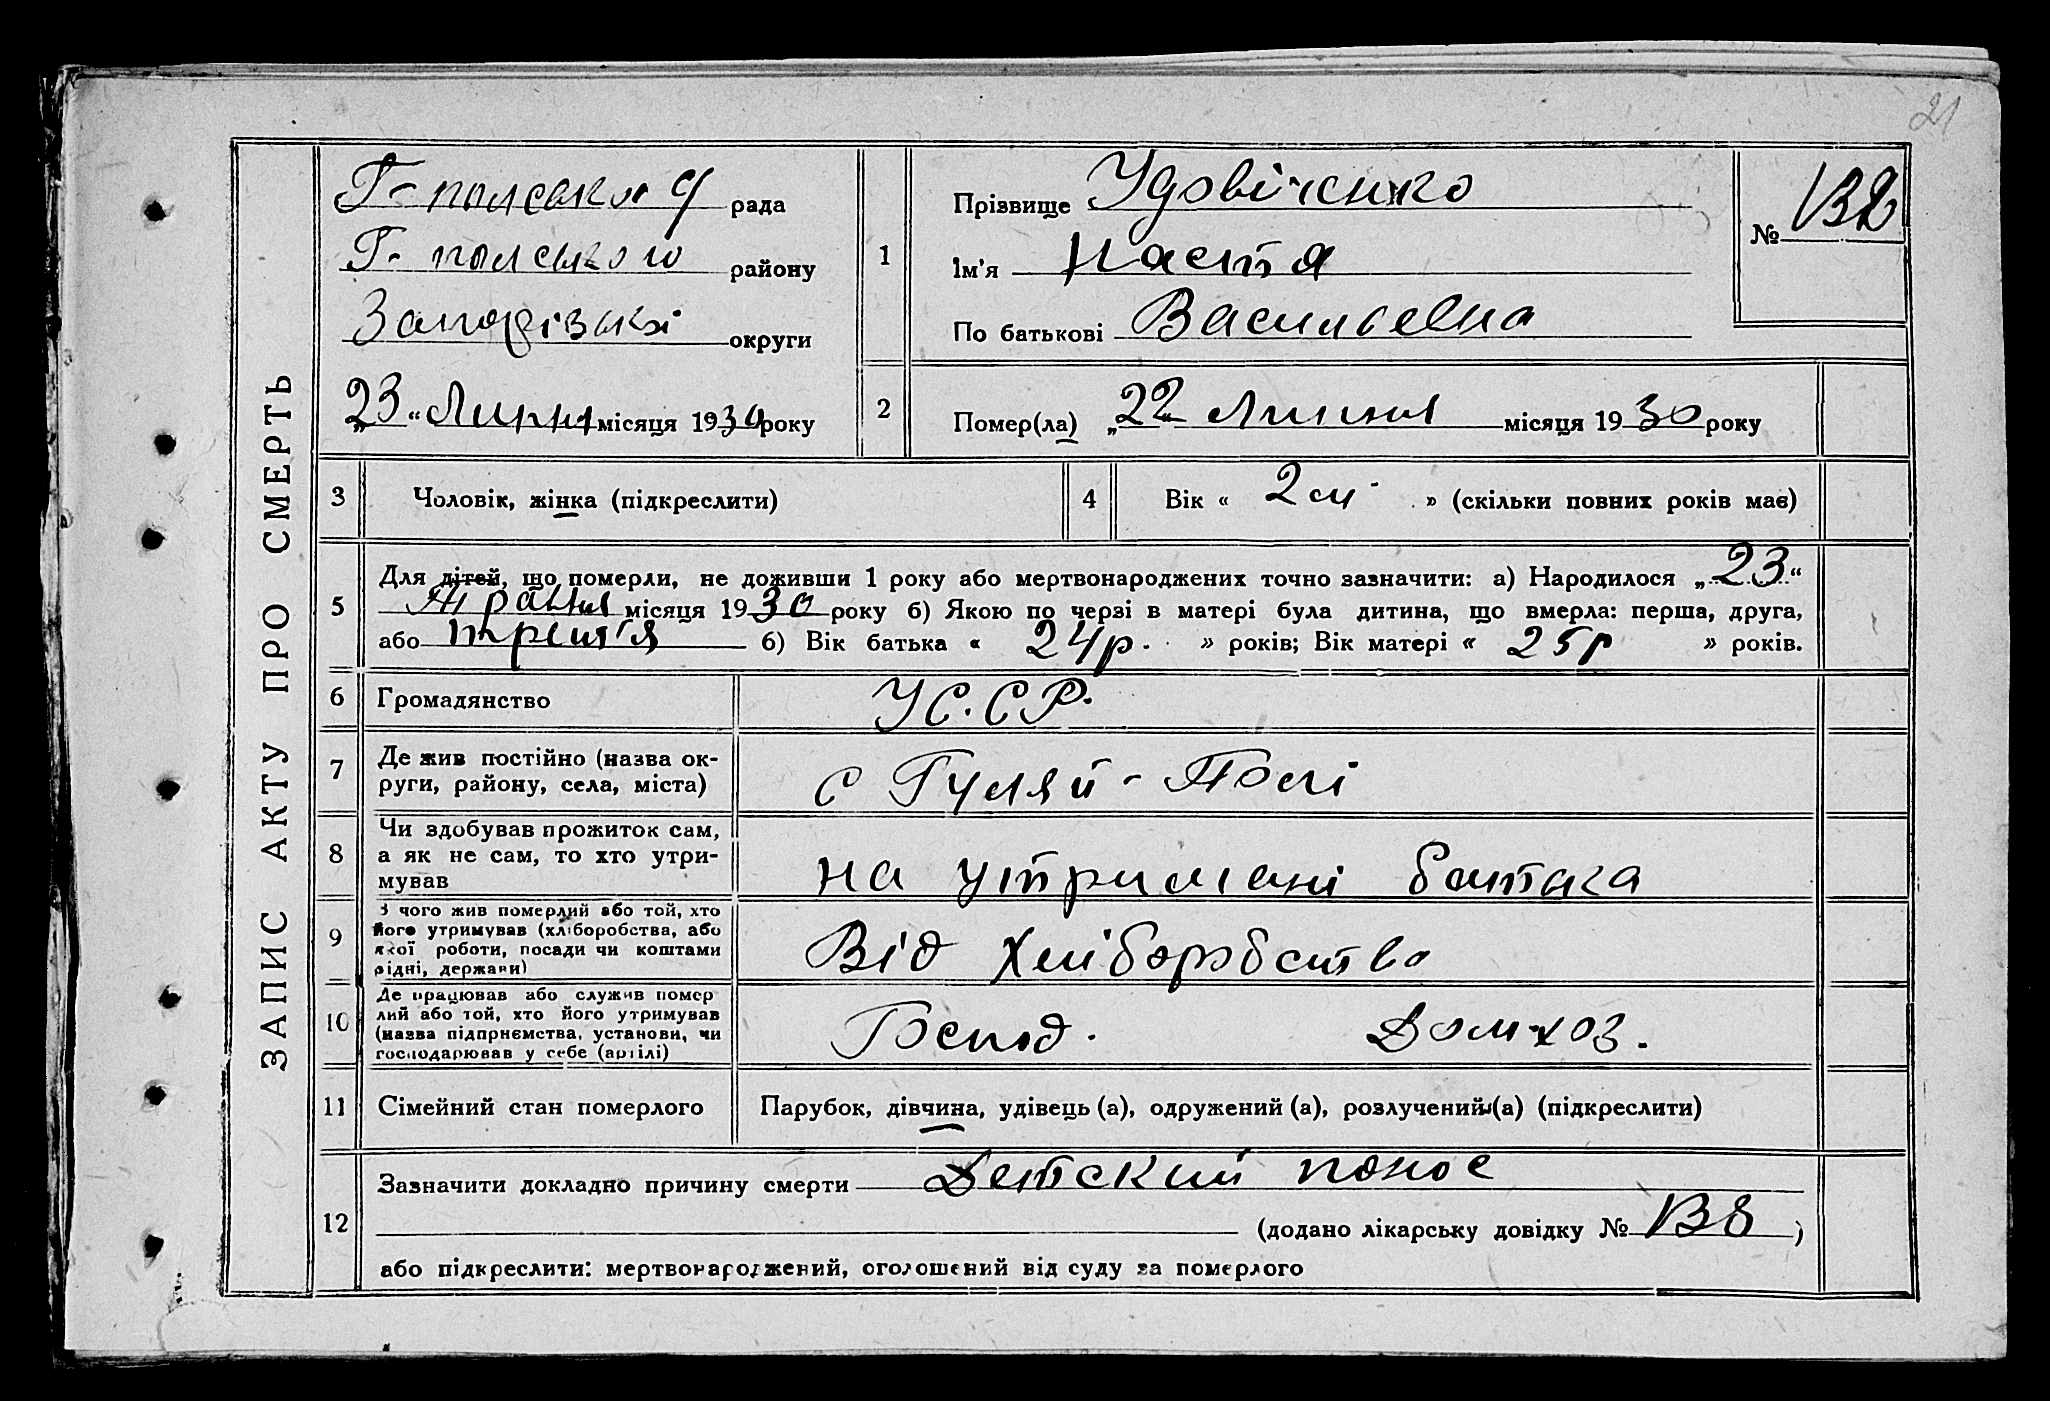 21
ЗАПИС АКТУ ПРО СМЕРТЬ
Г-польська рада
Г-польського району
Запорізької округи
„23“ Липня місяця 1930 року
1
Прізвище Удовіченко
Ім'я Настя
По батькові Васильевна
№ 132
2
Помер(ла) „22 Липня місяця 1930 року
3
Чоловік, жінка (підкреслити)
4
Вік « 2 м » (скільки повних років має)
5
Для дітей, що померли, не доживши 1 року або мертвонароджених точно зазначити: а) Народилося „23“
Травня місяця 1930 року б) Якою по черзі в матері була дитина, що вмерла: перша, друга,
або третя 6) Вік батька « 24р. » років; Вік матері « 25р » років.
6
Громадянство
УС.СР.
7
Де жив постійно (назва ок-
руги, району, села, міста)
с Гуляй-Полі
8
Чи здобував прожиток сам,
а як не сам, то хто утри-
мував
на утримані батька
9
З чого жив померлий або той, хто
його утримував (хліборобства, або
якої роботи, посади чи коштами
рідні, держави)
Від Хліборобства
10
Де працював або служив помер
лий або той, хто його утримував
(назва підпрнємства, установи, чи
господарював у себе (артілі)
Господ. Домхоз.
11
Сімейний стан померлого
Парубок, дівчина, удівець (а), одружений (а), розлучений (а) (підкреслити)
12
Зазначити докладно причину смерти Детский понос
(додано лікарську довідку № 138)
або підкреслити: мертвонароджений, оголошений від суду за померлого